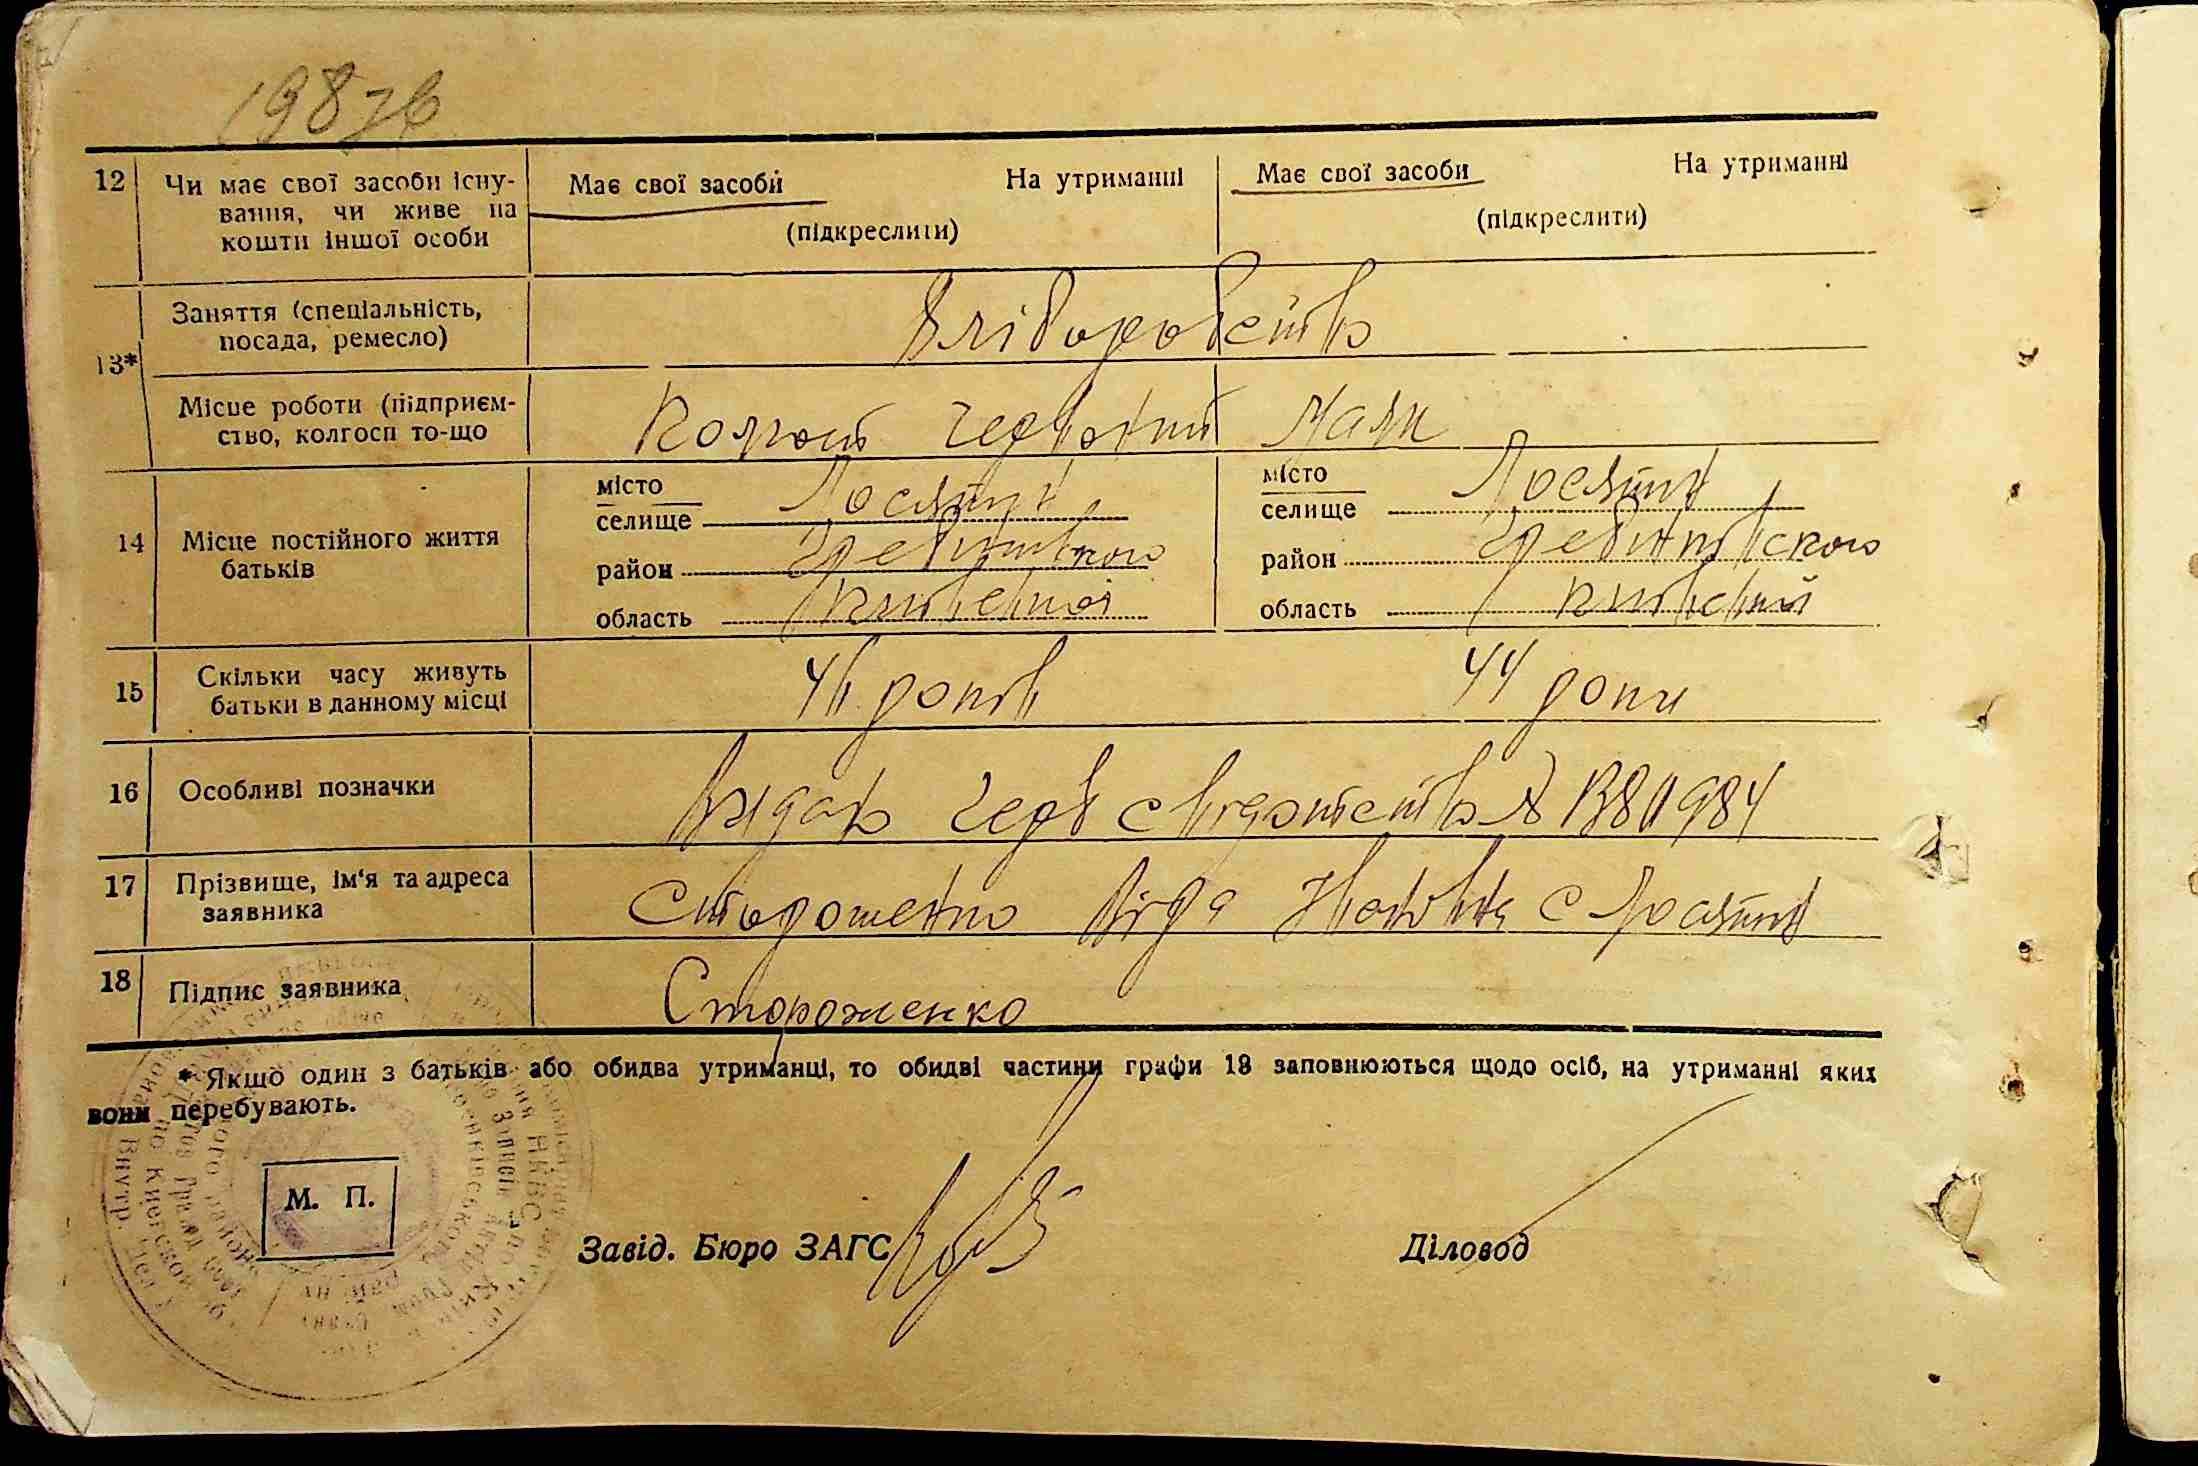 198зв
12 Чи має свої засоби існу-
вання, чи живе на
кошти іншої особи
Має свої засоби На утриманні
(підкреслити)
Має свої засоби На утриманні
(підкреслити)
13* Заняття (спеціальність,
посада, ремесло)
Хліборобство
Місце роботи (підприєм-
ство, колгосп то-що
Колгосп Червоний Маяк
14 Місце постійного життя
батьків
місто
селище Лосятин
район Гребинківского
область Київської
місто
селище Лосятин
район Гребинківского
область Київский
15 Скільки часу живуть
батьки в данному місці
років
44 роки
16 Особливі позначки
Видано черв свідотство № 1380984
17 Прізвище, ім'я та адреса
заявника
Стороженко Віра с Лосятин
18 Підпис заявника
Стороженко
* Якщо один з батьків або обидва утриманці, то обидві частини графи 13 заповнюються щодо осіб, на утриманні яких
вони перебувають.
М. П.
Завід. Бюро ЗАГС
Діловод